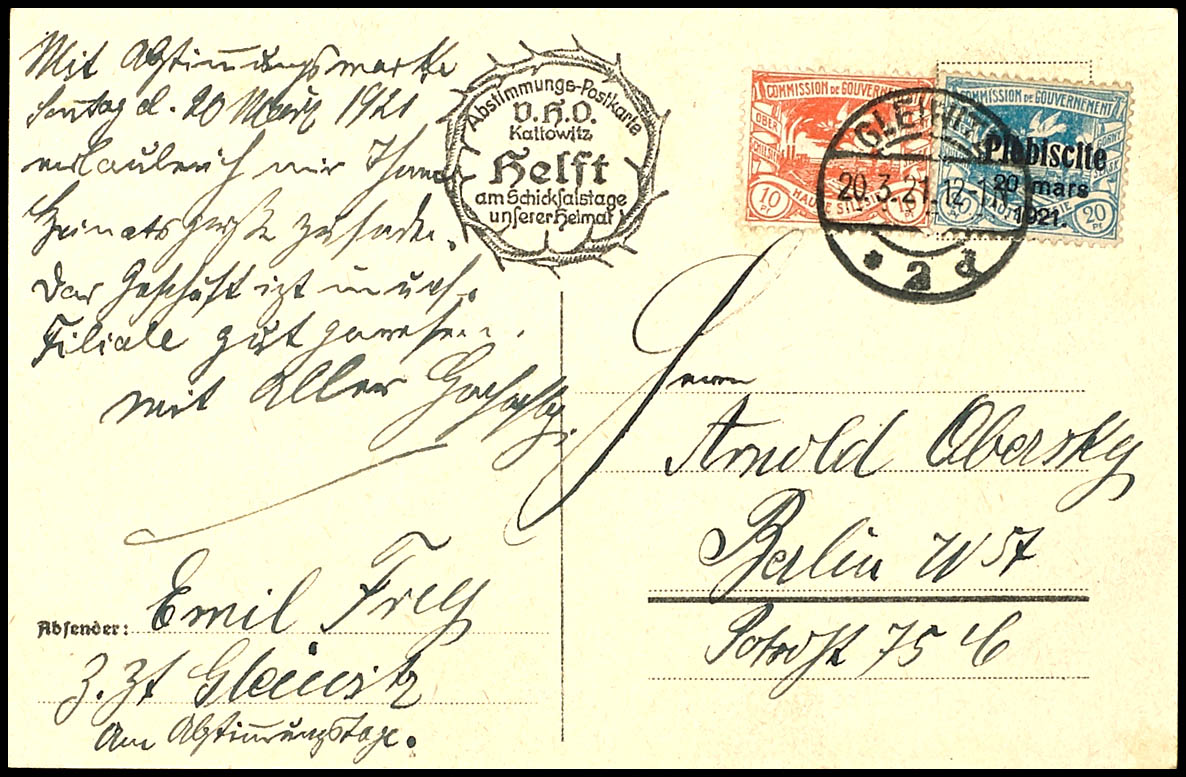 Mit Abstimmungsmarke
Sonntag d. 20 März 1921
erlaube ich mir Ihnen
Heimatsgrüße zu senden.
Das Geschäft ist in uns.
Filiale gut gewesen.
mit aller Hochachtg.
Absender: Emil Frey
z. Zt Gleiwitz
Am Abstimmungstage.
Abstimmungs-Postkarte
V.H.O.
Kattowitz
Helft
am Schicksalstage
unserer Heimat
COMMISSION DE GOUVERNEMENT
OBER
10 Pf
HAUTE SILÉSIE
COMMISSION DE GOUVERNEMENT
Plébiscite
20 mars
1921.
20 Pf
GLEIWITZ
20.3.21.12-1
* 2 d
Herrn
Arnold Obersky
Berlin W 57
Potsdst 75 C